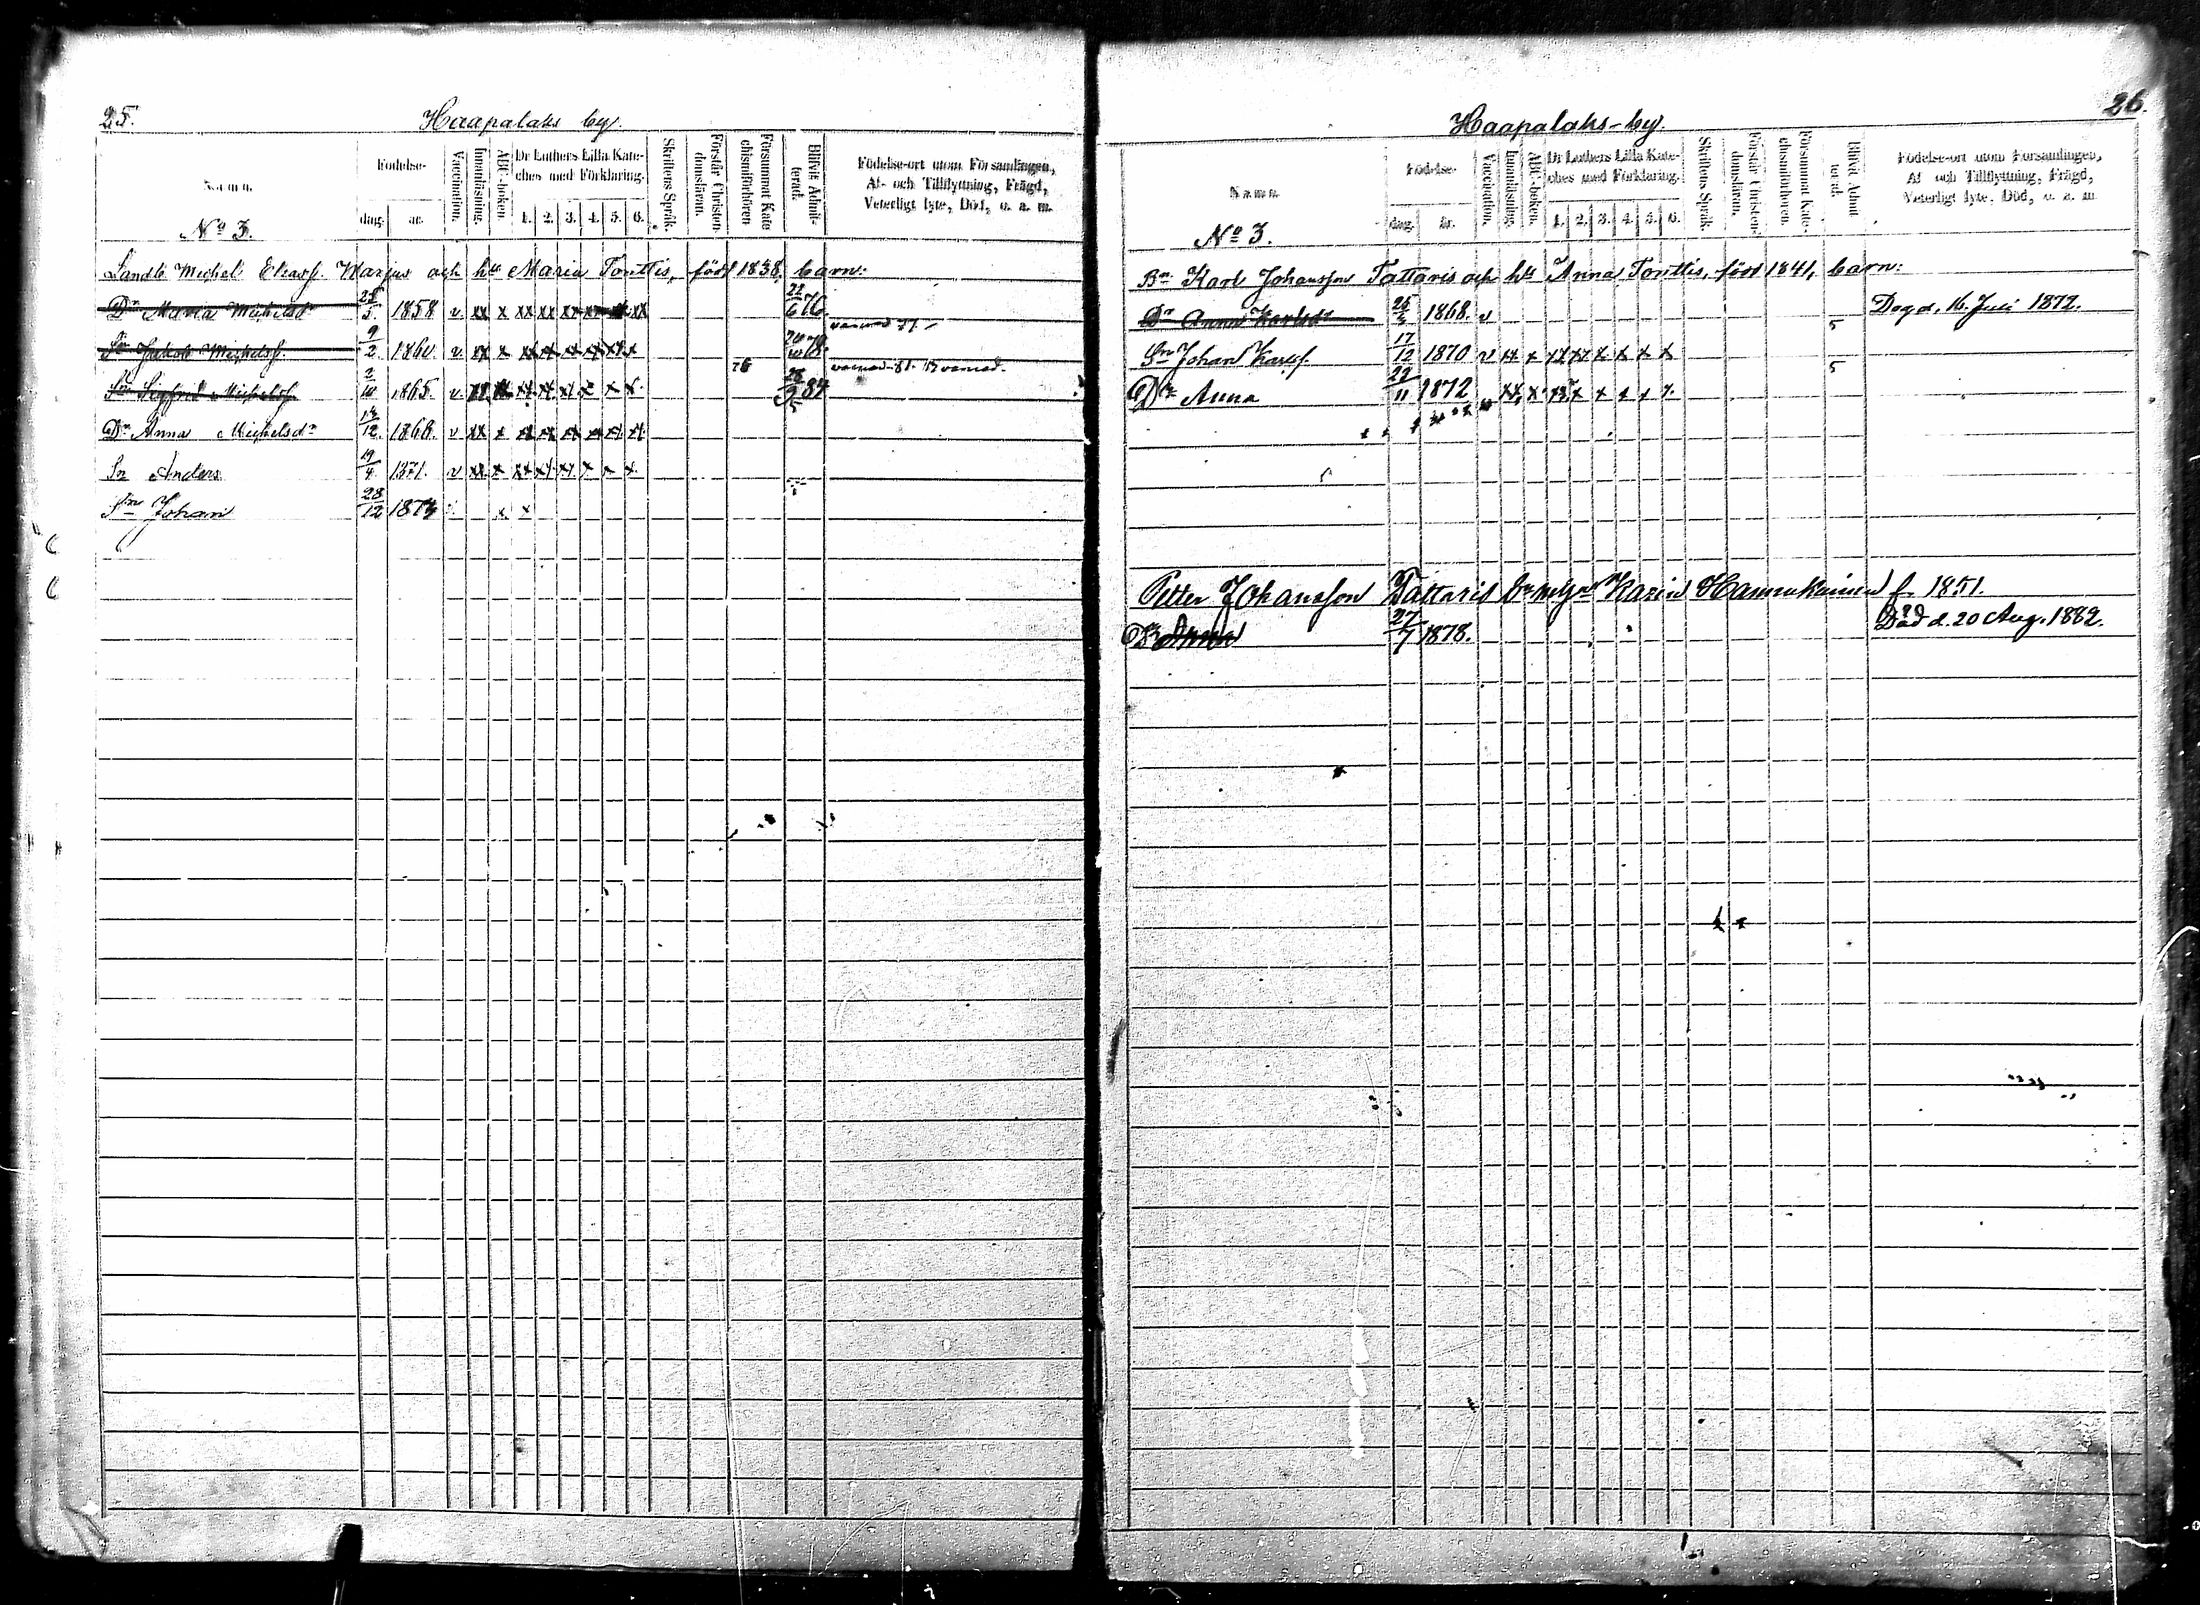 25.
Haapalaks by.
Namn.
Födelse-
dag.
år.
Vaccination.
Innanläsning.
ABC-boken.
Dr Luthers Lilla Kate-
ches med Förklaring.
1. 2. 3. 4. 5. 6.
Skriftens Språk.
Förstår Christen-
domsläran.
Försummat Kate
chismiförhören
Blifvit Admit-
terad.
Födelse-ort utom Församlingen,
Af- och Tillflyttning, Frägd,
Veterligt lyte, Död, o. a. m.
No 3.
Landb. Michel Eliasf. Marjus och hu Maria Torittis, född 1838, barn:
Dr Maria Michelsdr 25/5 1858 v xx x xx xx xx xx xx xx 22/6 76.
Sn Jakob Michelsf. 9/2 1860 v. xx x xx xx xx xx xx x 78
Sn Sigfrid Michelsf. 2/10 1865. v xx xx xx xx x x x 84
Dr Anna Michelsdr 14/12 1868. v xx x xx xx xx xx xx xx
Sn Anders 19/4 1871. v xx x xx xx xx x x x
Sn Johan 28/12 1873 x x
26.
Haapalaks-by.
Namn.
Födelse-
dag.
år.
Vaccination.
Innanläsning.
ABC-boken.
Dr Luthers Lilla Kate-
ches med Förklaring.
1. 2. 3. 4. 5. 6.
Skriftens Språk.
Förstår Christen-
domsläran.
Försummat Kate-
chismiförhören.
Blifvit Admit
terad.
Födelse-ort utom Församlingen,
Af och Tillflyttning, Frägd,
Veterligt lyte, Död, o. a. m.
No 3.
Bn. Karl Johansson Tattaris och hu Anna Torittis, född 1841, barn:
Dr Anna Karlsdr 25/4 1868. v Dog d. 16 Juli 1872.
Sn Johan Karlsf. 17/12 1870 v xx x xx xx x x x x 5
Dr Anna 22/11 1872 xx x x x x x x 5
Petter Johansson Tattaris Karin Hannukainen f. 1851.
Dr Anna 27/7 1878. Död d. 20 Aug. 1882.